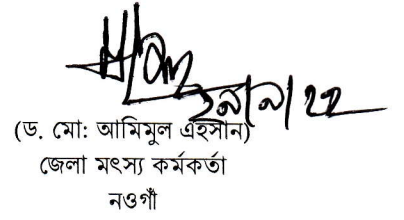 (ড. মো: আমিমুল এহসান)
জেলা মৎস্য কর্মকর্তা
নওগাঁ